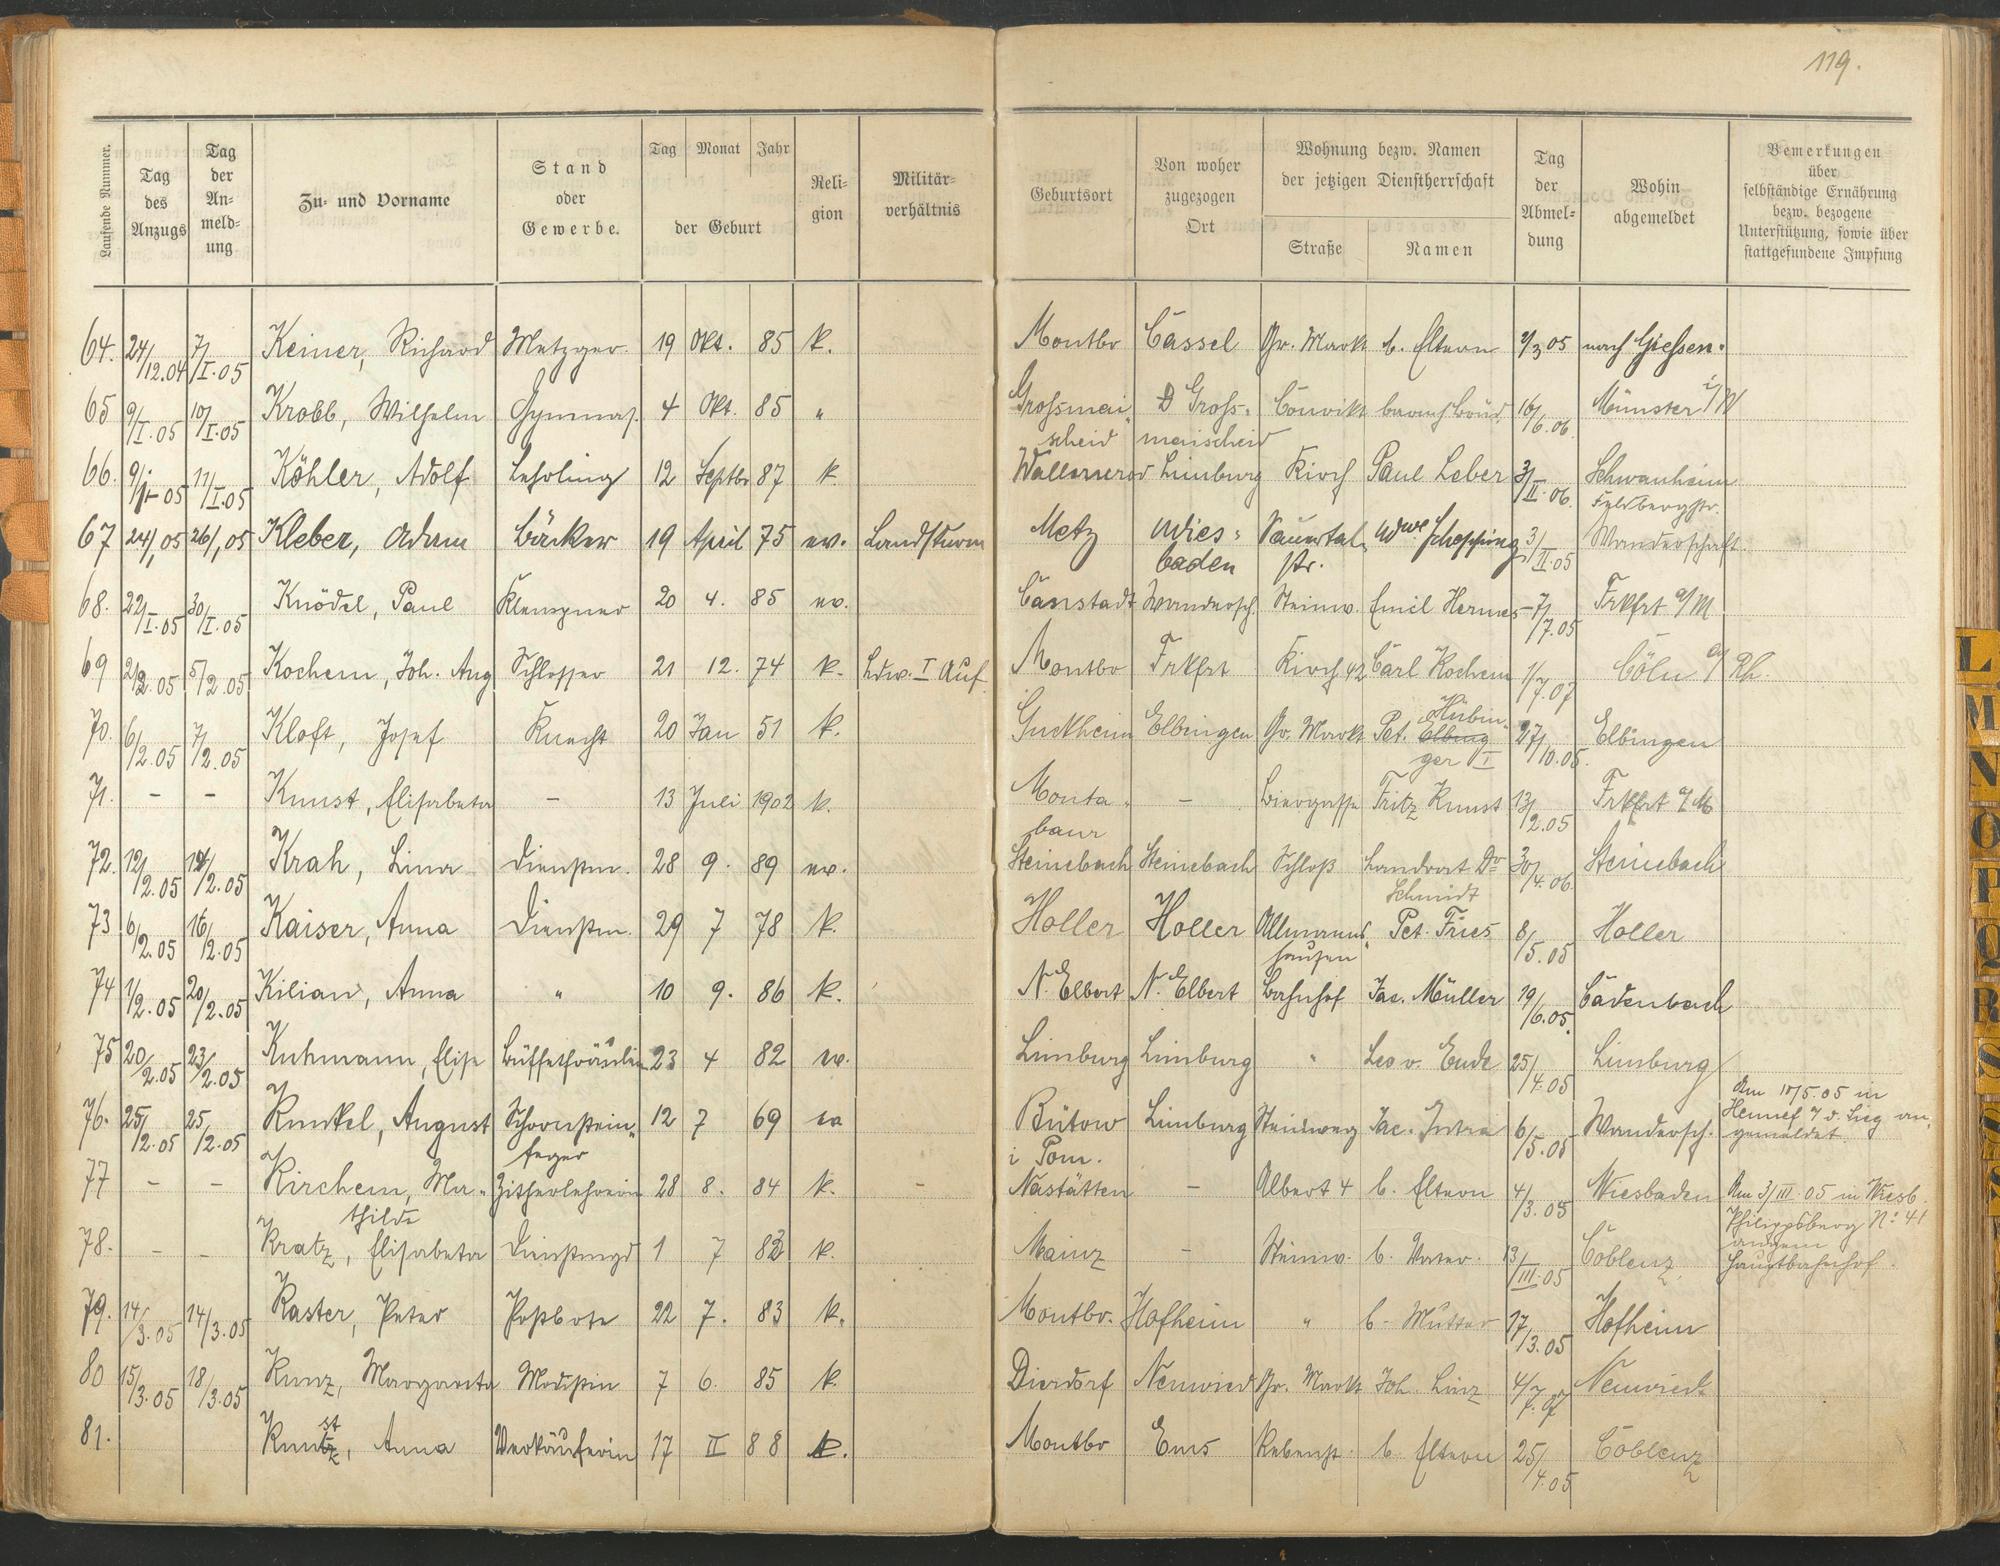 119.
Laufende Nummer. Tag des Anzugs Tag der An- meld- ung Zu- und Vorname Stand oder Gewerbe. Tag Monat Jahr der Geburt Reli- gion Militär- verhältnis Geburtsort Von woher zugezogen Ort Wohnung bezw. Namen der jetzigen Dienstherrschaft Straße Namen Tag der Abmel- dung Wohin abgemeldet Bemerkungen über selbständige Ernährung bezw. bezogene Unterstützung, sowie über stattgefundene Impfung
64. 24/12.04 7/I.05 Keiner, Richard Metzger. 19 Okt. 85 k. Montbr Cassel Gr. Markt b. Eltern 2/3 05 nach Giessen.
65 9/I.05 10/I.05 Krobb, Wilhelm Gymnas. 4 Okt. 85 " Grossmai- D Gross- Convikt 16/6.06. Münster i/W
scheid maischeid
66. 9/I 05 11/I.05 Köhler, Adolf Lehrling 12 Septbr 87 k Wallmerod Limburg Kirch Paul Leber 3/II.06. Schwanheim
Feldbergstr.
67 24/1 05 26/1 05 Kleber, Adam Bäcker 19 April 75 ev. Landsturm Metz Wies- Sauertal- Wwe 3/II.05 Wanderschaft.
baden str.
68. 22/I.05 30/I.05 Knödel, Paul Klempner 20 4. 85 ev. Canstadt Wandersch. Steinw. Emil Hermes 7/7.05 Frkfrt a/M
69 2/2.05 5/2.05 Kochem, Joh. Aug Schlosser 21 12. 74 k. Ldw. I Auf Montbr Frkfrt Kirch 42 Carl Kochem 1/7.07 Cöln a/Rh.
70. 6/2.05 7/2.05 Kloft, Josef Knecht 20 Jan 51 k. Guckheim Elbingen Gr. Markt Pet. Elbing Hübin- 27/10.05. Elbingen
ger I
71. - - Kunst, Elisabeta - 13 Juli 1902 k. Monta- - Biergasse Fritz Kunst 13/2.05 Frkfrt a/M
baur
72. 12/2.05 14/2.05 Krah, Lina Dienstm. 28 9. 89 ev. Steinebach Steinebach Schloß Landrat Dr 30/4.06 Steinebach
Schmidt
73 6/2.05 16/2.05 Kaiser, Anna Dienstm. 29 7 78 k. Holler Holler Allmanns- Pet. Fries 8/5.05 Holler
hausen
74 1/2.05 20/2.05 Kilian, Anna " 10 9. 86 k. N. Elbert N. Elbert Bahnhof Jac. Müller 19/6.05. Cadenbach
75 20/2.05 23/2.05 Kuhmann, Elise Büffetfräulein 23 4 82 ev. Limburg Limburg " Leo v. Ende 25/4.05 Limburg
76. 25/2.05 25/2.05 Kunkel, August Schornstein- 12 7 69 ev Bütow Limburg Steinweg Jac. 6/5.05 Wandersch. Am 10/5.05 in
Hennef a/d. Sieg an-
feger i Pom. gemeldet.
77 - - Kirchem, Ma- Zitherlehrerin 28 8. 84 k. Nastätten - Albert 4 b. Eltern 4/3.05 Wiesbaden Am 3/III.05 in Wiesb.
thilde Philippsberg No 41
angem
78. - - Kratz, Elisabeta Dienstmgd 1 7 83 k. Mainz - Steinw. b. Vater. 13/III.05 Coblenz. Hauptbahnhof.
79. 14/3.05 14/3.05 Kaster, Peter Postbote 22 7. 83 k. Montbr. Hofheim " b. Mutter 17/3.05 Hofheim
80 15/3.05 18/3.05 Kunz, Margareta Modistin 7 6. 85 k. Dierdorf Neuwied Gr. Markt Joh. Linz 4/7.07 Neuwied.
81. Kunst, Anna Verkäuferin 17 II 88 k. Montbr Ems Rebenst. b. Eltern 25/4.05 Coblenz
L
M
N
O
P
Q
R
S